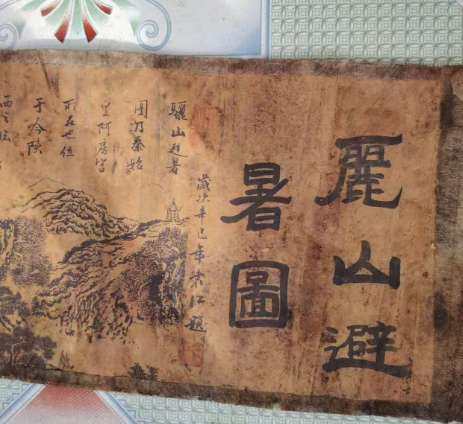 麗山避
暑圖
歲次辛巳年袁江題
驪山避暑
圖乃秦始
皇阿房宮
所在也位
于今陝
西